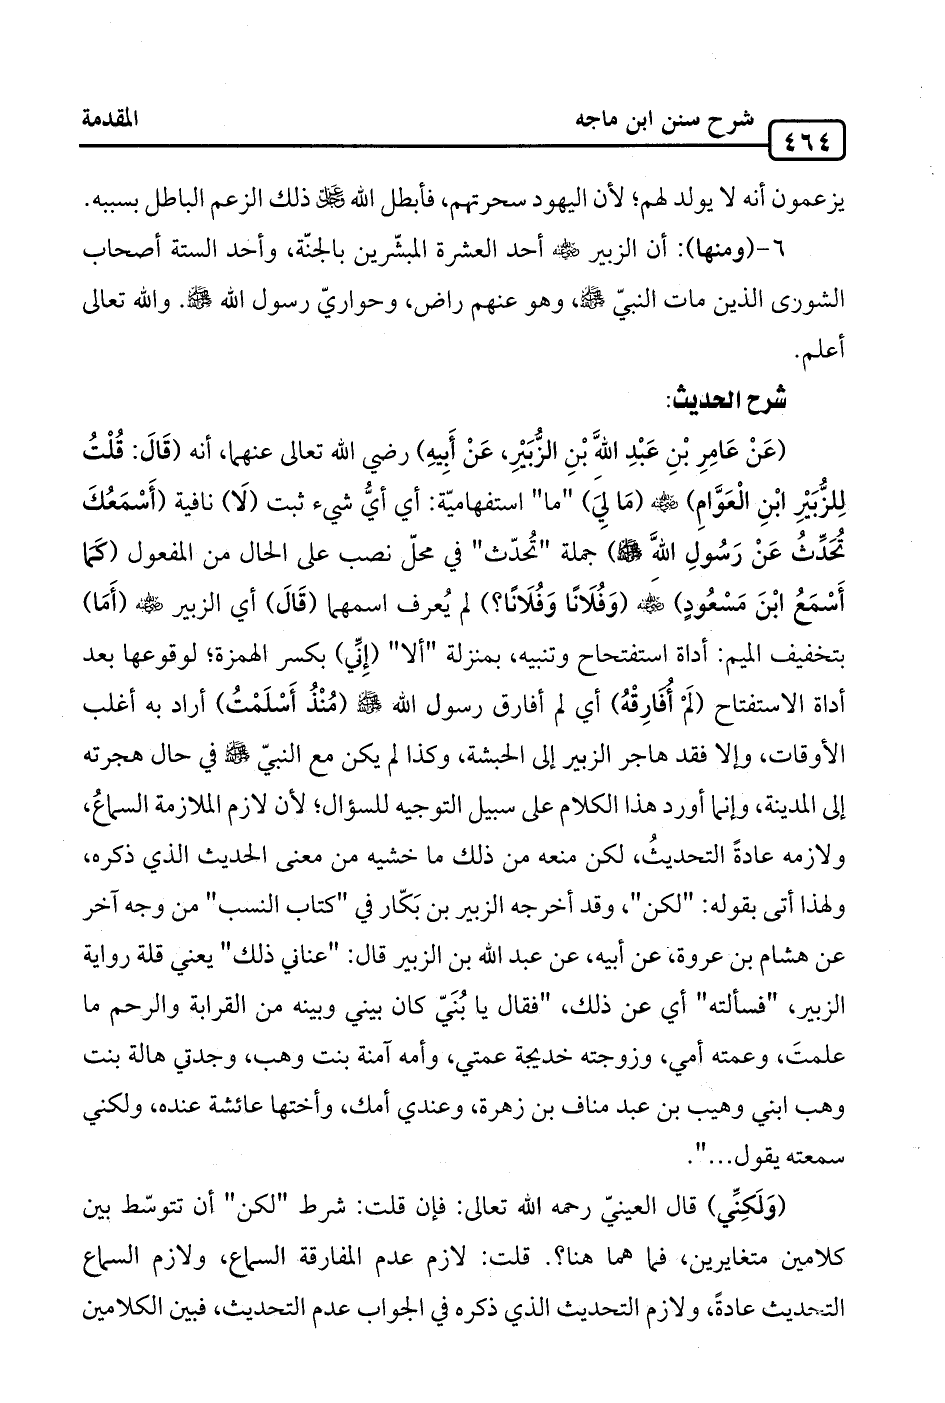 شرح سنن ابن ماجه
المقدمة
٤٦٤
يزعمون أنه لا يولد لهم؛ لأن اليهود سحرتهم، فأبطل الله ﷻ ذلك الزعم الباطل بسببه.
٦-(ومنها): أن الزبير رضي الله عنه أحد العشرة المبشّرين بالجنّة، وأحد الستة أصحاب
الشورى الذين مات النبيّ ﷺ، وهو عنهم راض، وحواريّ رسول الله ﷺ. والله تعالى
أعلم.
شرح الحديث:
(عَنْ عَامِرِ بْنِ عَبْدِ اللهَّ بْنِ الزُّبَيْرِ، عَنْ أَبِيهِ) رضي الله تعالى عنهما، أنه (قَالَ: قُلْتُ
لِلزُّبَيْرِ ابْنِ الْعَوَّامِ) رضي الله عنه (مَا لِيَ) "ما" استفهاميّة: أي أيُّ شيء ثبت (لَا) نافية (أَسْمَعُكَ
تُحَدِّثُ عَنْ رَسُولِ اللهَّ ﷺ) جملة "تُحدّث" في محلّ نصب على الحال من المفعول (كَمَا
أَسْمَعُ ابْنَ مَسْعُودٍ) رضي الله عنه (وَفُلَانًا وَفُلَانًا؟) لم يُعرف اسمهما (قَالَ) أي الزبير رضي الله عنه (أَمَا)
بتخفيف الميم: أداة استفتحاح وتنبيه، بمنزلة "ألا" (إِنِّي) بكسر الهمزة؛ لوقوعها بعد
أداة الاستفتاح (لَمْ أُفَارِقْهُ) أي لم أفارق رسول الله ﷺ (مُنْذُ أَسْلَمْتُ) أراد به أغلب
الأوقات، وإلا فقد هاجر الزبير إلى الحبشة، وكذا لم يكن مع النبيّ ﷺ في حال هجرته
إلى المدينة، وإنما أورد هذا الكلام على سبيل التوجيه للسؤال؛ لأن لازم الملازمة السماعُ،
ولازمه عادةً التحديثُ، لكن منعه من ذلك ما خشيه من معنى الحديث الذي ذكره،
ولهذا أتى بقوله: "لكن"، وقد أخرجه الزبير بن بَكّار في "كتاب النسب" من وجه آخر
عن هشام بن عروة، عن أبيه، عن عبد الله بن الزبير قال: "عناني ذلك" يعني قلة رواية
الزبير، "فسألته" أي عن ذلك، "فقال يا بُنَيّ كان بيني وبينه من القرابة والرحم ما
علمتَ، وعمته أمي، وزوجته خديجة عمتي، وأمه آمنة بنت وهب، وجدتي هالة بنت
وهب ابني وهيب بن عبد مناف بن زهرة، وعندي أمك، وأختها عائشة عنده، ولكني
سمعته يقول...".
(وَلَكِنِّي) قال العينيّ رحمه الله تعالى: فإن قلت: شرط "لكن" أن تتوسّط بين
كلامين متغايرين، فما هما هنا؟. قلت: لازم عدم المفارقة السماع، ولازم السماع
التحديث عادةً، ولازم التحديث الذي ذكره في الجواب عدم التحديث، فبين الكلامين